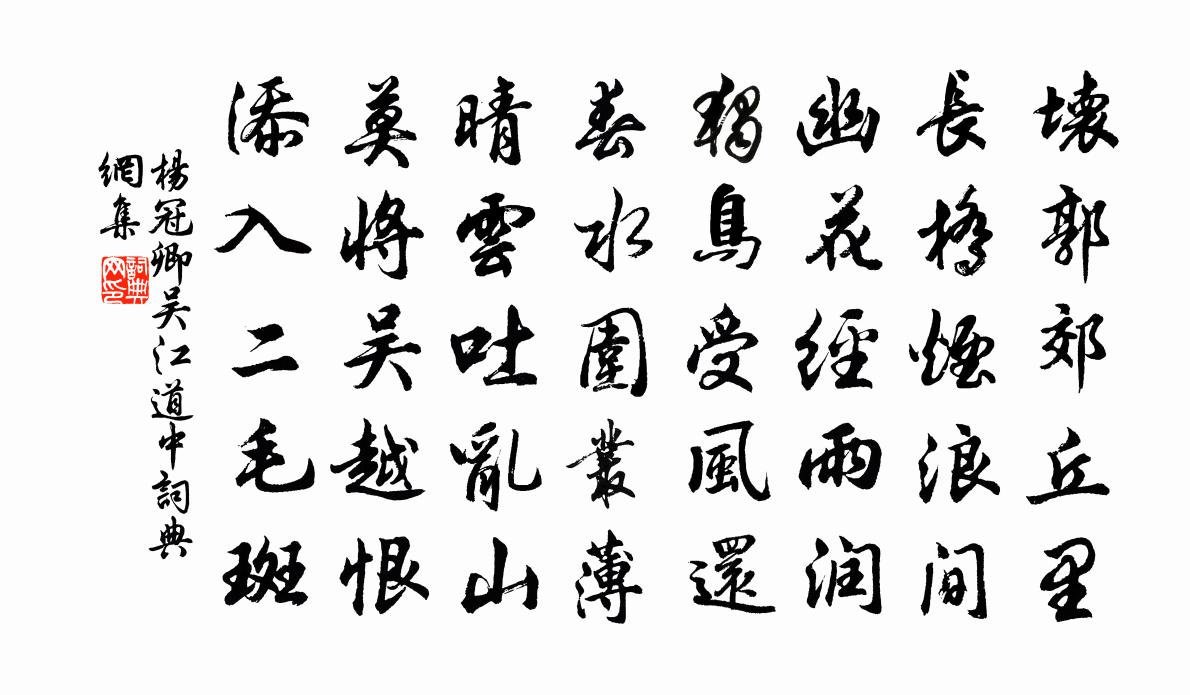 壞郭郊丘里
長橋煙浪間
幽花經雨润
獨鳥受風還
春水圍叢薄
晴雲吐亂山
莫將吳越恨
添入二毛斑
楊冠卿吴江道中詞典
網集
詞典
网印